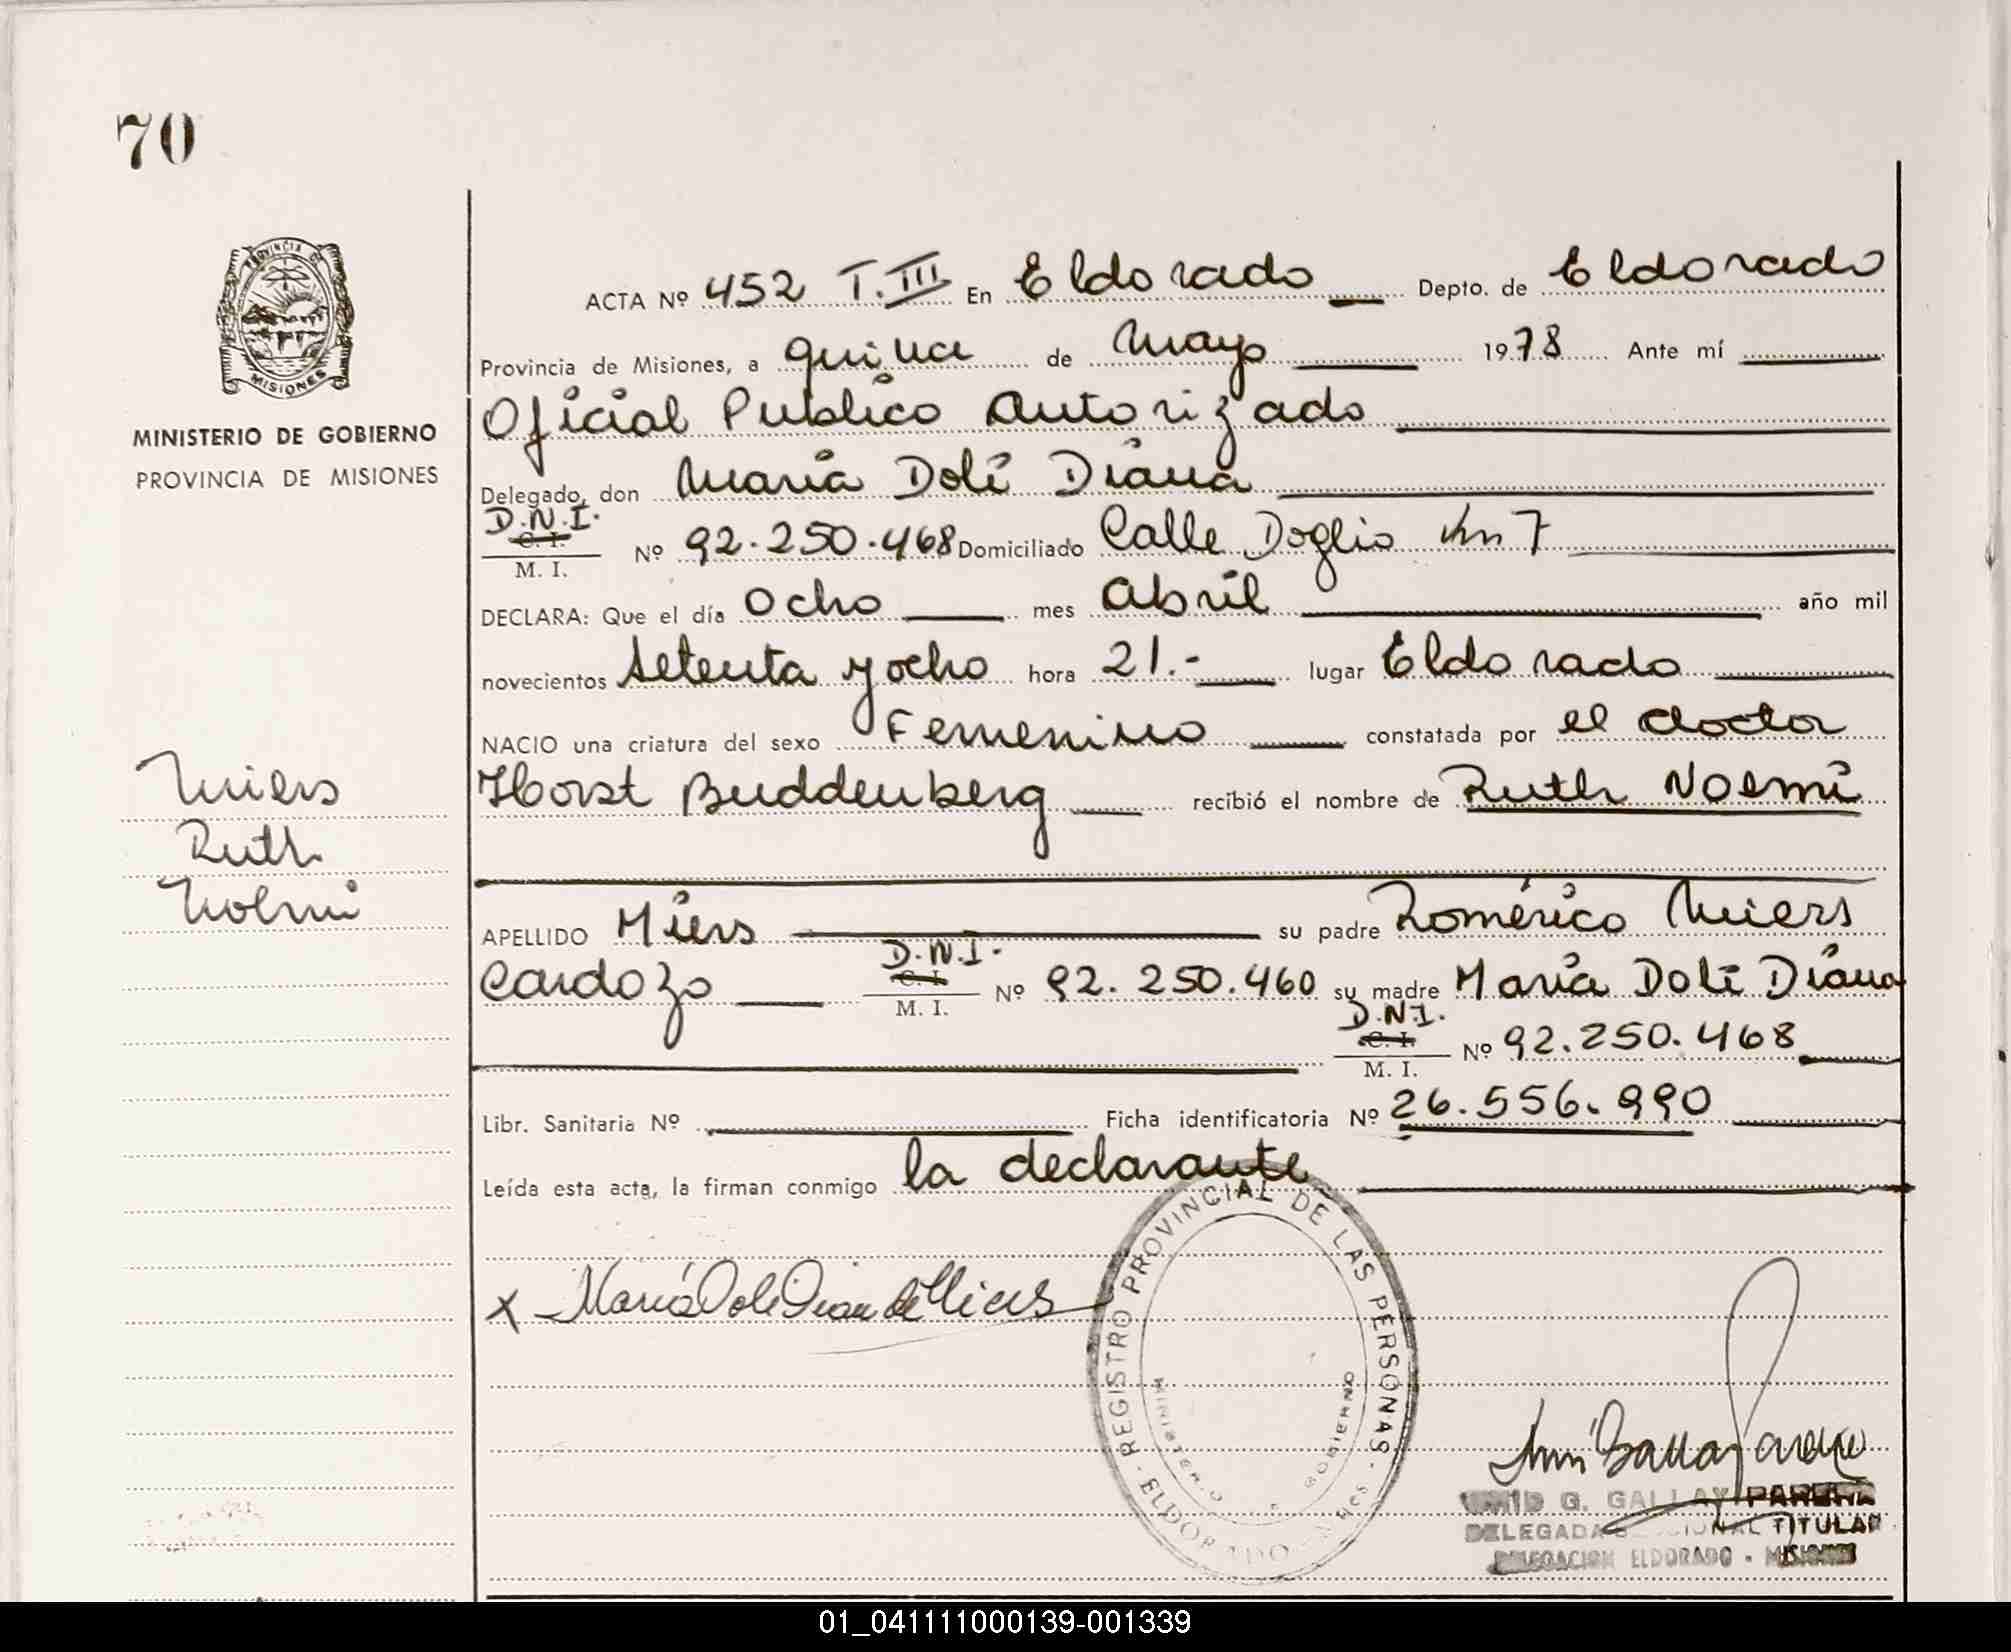 70
PROVINCIA DE
MISIONES
MINISTERIO DE GOBIERNO
PROVINCIA DE MISIONES
ACTA Nº 452 T. III En Eldorado Depto. de Eldorado
Provincia de Misiones, a quince de Mayo 1978 Ante mí
Oficial Publico Autorizado
Delegado, don María Doli Diana
D.N.I.
C. I.
M. I.
Nº 92.250.468 Domiciliado Calle Doglio Km 7
DECLARA: Que el día Ocho mes Abril año mil
novecientos Setenta y ocho hora 21.- lugar Eldorado
NACIO una criatura del sexo Femenino constatada por el doctor
Horst Buddenberg recibió el nombre de Ruth Noemi
Miers
Ruth
Noemi
APELLIDO Miers su padre Romérico Miers
Cardozo D.N.I. C. I. M. I. Nº 92.250.460 su madre María Doli Diana
D.N.I. C. I. M. I. Nº 92.250.468
Libr. Sanitaria Nº Ficha identificatoria Nº 26.556.990
Leída esta acta, la firman conmigo la declarante
x María Doli Dian de Miers
REGISTRO PROVINCIAL DE LAS PERSONAS
MINISTERIO DE GOBIERNO
ELDORADO - Mnes
G. GALLAY PAREHA
DELEGADA SECCIONAL TITULAR
DELEGACION ELDORADO - MISIONES
01_041111000139-001339